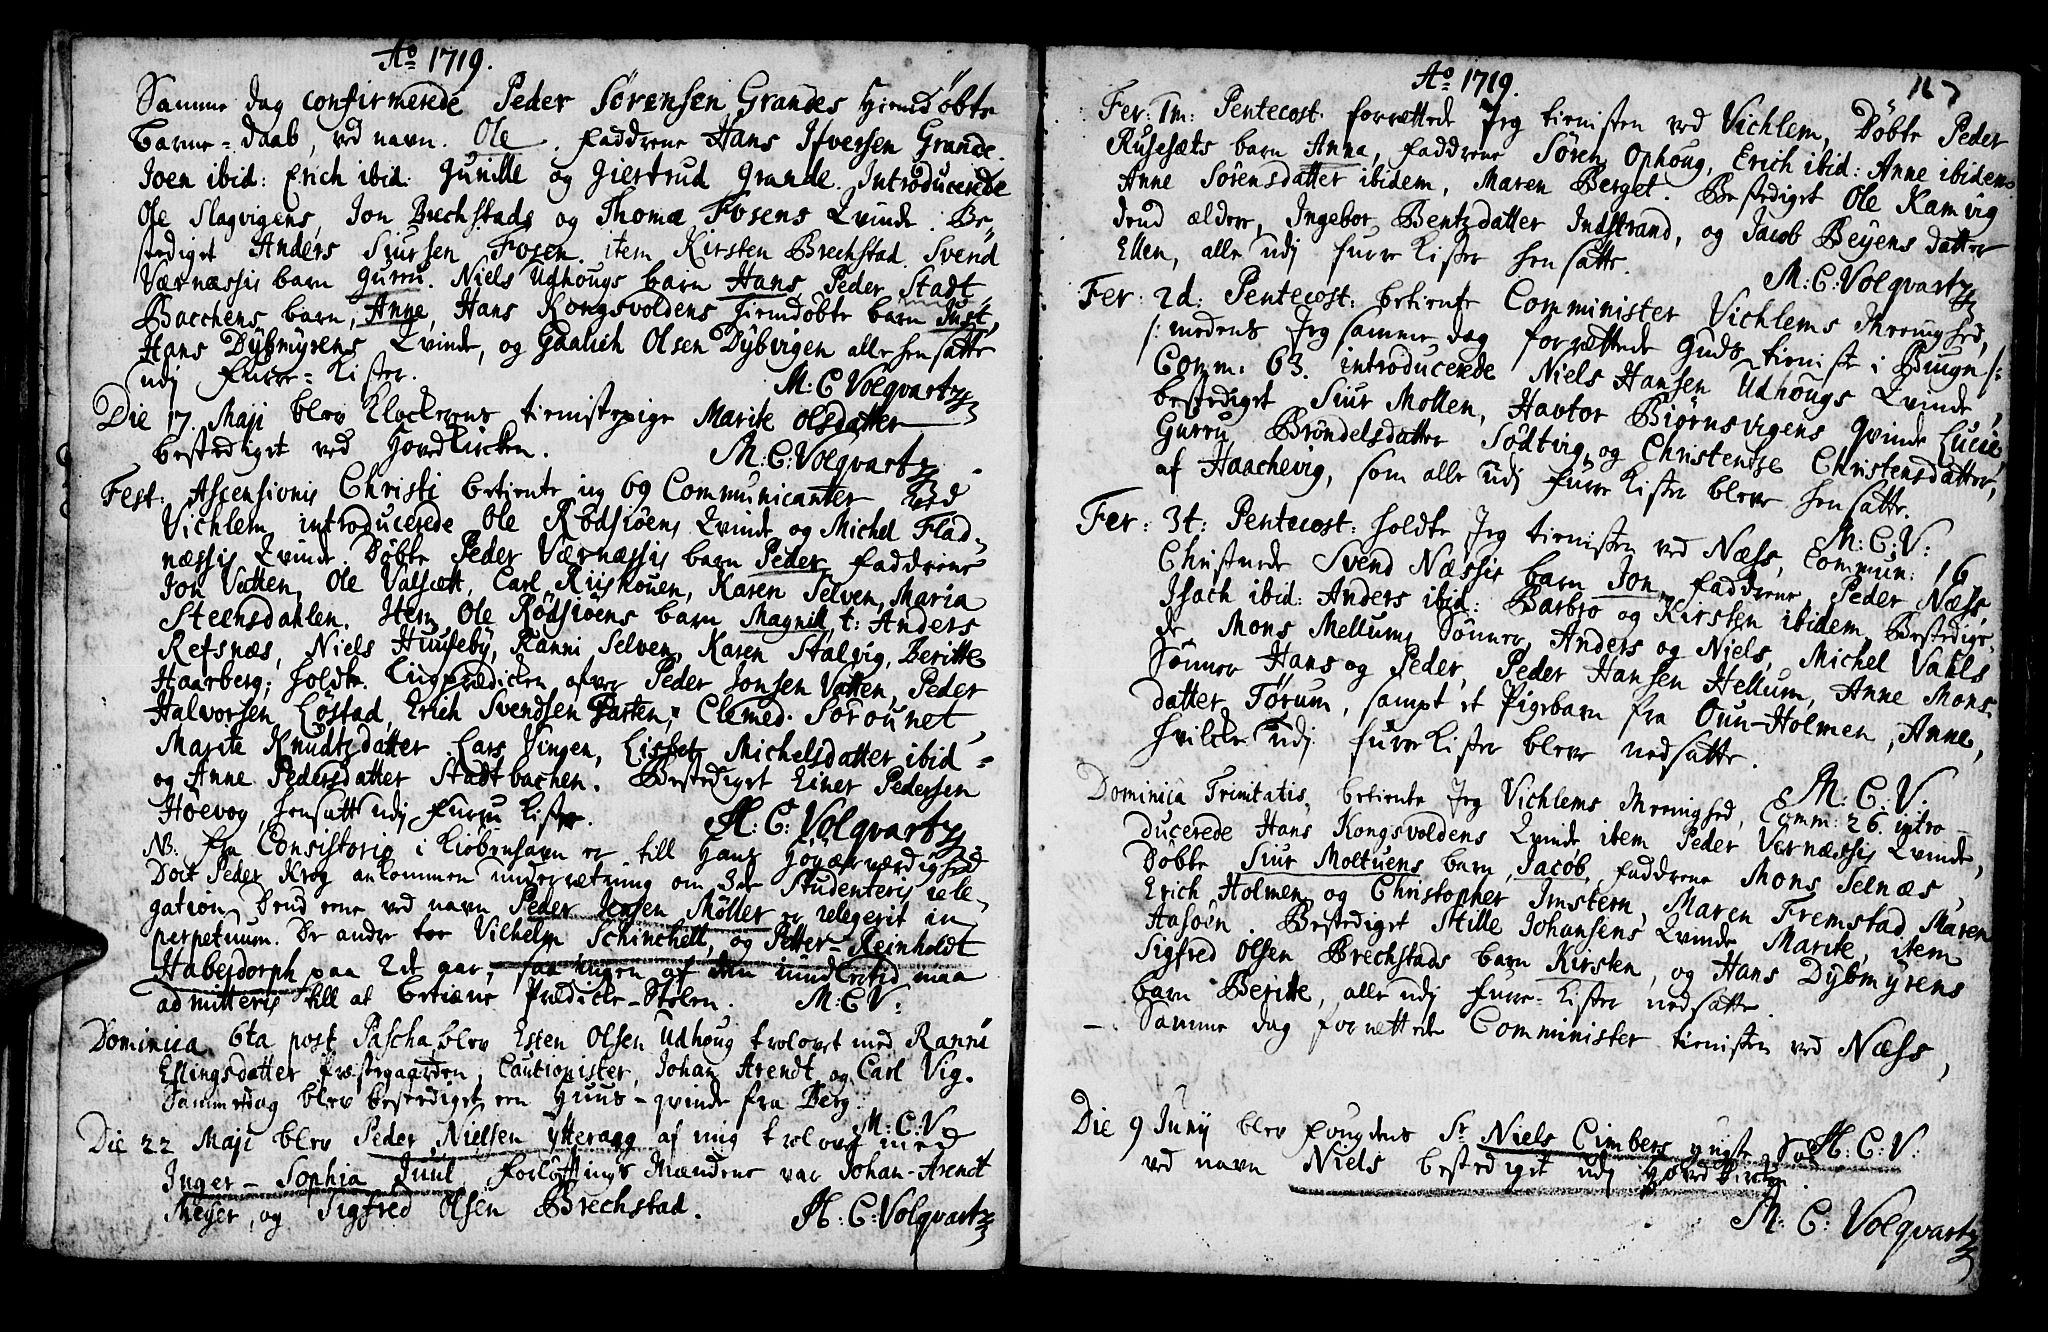 Ao 1719.
Samme dag confirmerede Peder Sørensen Grandes Hiemdøbte
Barne-daab, ved navn. Ole. Faddrene Hans Ifversen Grande.
Joen ibid: Erich ibid: Gunild og Giertrud Grande. Introducerede
Ole Slagvigens, Jon Brechstads og Thomæ Fosens Qvinde. Be-
stediget Anders Siursen Fosen, item Kirsten Brechstad. Svend
Værnæssis barn Gurru. Niels Udhougs barn Hans Peder Stadt
Bacchens barn, Anne, Hans Kongsvoldens hiemdøbte barn Just,
Hans Dybmyrens Qvinde, og Gaalich Olsen Dybvigen alle hensatte
udj Furre-Kister.
M: C Volqvartz
Die 17. Maji blev Klockerens tienistepige Marite Olsdatter
bestediget ved Hovedkirken.
M: C: Volqvartz
Fest: Ascensionis Christi betiente jeg 69 Communicanter ved
Vichlem, introducerede Ole Rødsiøens Qvinde og Michel Flad-
næssis Qvinde, Døbte Peder Værnæssis barn Peder, Faddrene
Jon Vatten, Ole Valsætt, Carl Riiskouen, Karen Selven, Maria
Steensdahlen. Item Ole Rødsiøens barn Magnil, t: Anders
Refsnæs, Niels Huuseby, Ranni Selven, Karen Stalvig, Beritte
Haarberg; holdte Liigprædicken ofver Peder Jonsen Vatten, Peder
Halvorsen Løstad, Erich Svendsen Garten, Clemed Sørounet,
Marite Knudtzdatter Lars Vingen, Lisbet Michelsdatter ibid-
og Anne Pedersdatter Stadtbachen. Bestediget Einer Pedersen
Hoevog, hensatt udj Furru Kister.
M: C: Volqvartz
NB. fra Consistorio i Kiøbenhavn er till Hans Høyærværdighed
Doct Peder Krog ankommen underrætning om 3de Studenters rele-
gation, Hvud eene ved navn Peder Jensen Møller er relegerit in
perpetuum. De andre toe Vilhelm Schinchell, og Petter-Reinholdt
Haberdorph paa 2de aar, saa ingen af dem imidlertid maa
admitteris till at betiæne Prædicke-Stolen.
M: C V:
Dominica 6ta post Pascha blev Esten Olsen Udhoug trolovet med Ranni
Ellingsdatter Præstegaarden, Cautionister, Johan Arendt og Carl Vig.
Samme dag blev bestediget een Huus-qvinde fra Berg.
M: C. V:
Die 22 Maji blev Peder Nielsen Ytteragg af mig trolovet med
Inger-Sophia Juul Forløftnings Mændene var Johan-Arendt
Meyer, og Sigfred Olsen Brechstad.
M: C: Volqvartz
Ao 1719.
117
Fer: 1m: Pentecost. forrettede Jeg tienisten ved Vichlem, Døbte Peder
Rusesæts barn Anna, Faddrene Søren Ophoug, Erich ibid: Anne ibidem
Anne Sørensdatter ibidem, Maren Berget. Bestediget Ole Kamvig
deud ældre, Ingebor Bentzdatter Indstrand, og Jacob Beyens datter
Ellen, alle udj furre Kister hensatte.
M: C: Volqvartz
Fer: 2d: Pentecost: betiente Comminister Vichlems Meenighed,
/: medens Jeg samme dag forrettede Guds tieniste i Biugn :/
Comm: 63. introducerede Niels Hansen Udhougs Qvinde,
bestediget Siur Mollen, Havtor Biørnsvigens Qvinde Lucie,
Gurru Brøndelsdatter Sødtvig, og Christentze Christensdatter,
af Haachevig, som alle udj Furre Kister bleve hensatte.
M: C: V:
Fer: 3t: Pentecost: holdte Jeg tienisten ved Næss, Commun: 16
Christnede Svend Næssis barn Jon, Faddrene, Peder Næss,
Isach ibid: Anders ibid: Barbro og Kirsten ibidem. Bestedige-
de Mons Mellums Sønner Anders og Niels, Michel Vahls
Sønner Hans og Peder, Peder Hansen Hellum, Anne Mons-
datter Tørum, sampt et Pigebarn fra Oun-Holmen, Anne,
hvilcke udj furre Kister bleve nedsatte.
M: C. V.
Dominica Trinitatis, betiente Jeg Vichlems Meenighed, Comm: 26. intro-
ducerede Hans Kongsvoldens Qvinde, item Peder Værnæssis Qvinde,
Døbte Siur Moltuens barn, Jacob, Faddrene Mons Selnæs,
Erich Holmen, og Christopher Imstern, Maren Fremstad, Maren
Aasøen. Bestediget Stille Johansens Qvinde Marite, item
Sigfred Olsen Brechstads barn Kirsten, og Hans Dybmyrens
barn Beritte, alle udj furre-Kister nedsatte.
-. Samme dag forrettede Comminister tienisten ved Næss,
M: C. V:
Die 9 Junij blev fougdens Sr Niels Cimbers yngste Søn
ved navn Niels bestediget udj Hoved Kirken.
M: C: Volqvartz